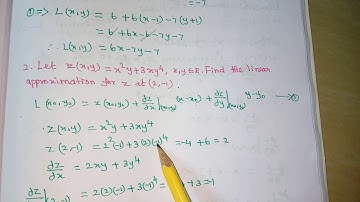 = -7
① => L(x,y) = 6 + 6(x-1) -7(y+1)
= 6 + 6x - 6 -7y -7
∴ L(x,y) = 6x -7y -7
2. Let z(x,y) = x²y + 3xy⁴, x,y ∈ R. Find the linear
approximation for z at (2,-1).
L(x₀,y₀) = z(x₀,y₀) + dz/dx|(x₀,y₀) (x-x₀) + dz/dy|(x₀,y₀) y-y₀ → ①
z(x,y) = x²y + 3xy⁴
z(2,-1) = 2²(-1) + 3(2)(-1)⁴ = -4 + 6 = 2
dz/dx = 2xy + 3y⁴
dz/dx = 2(2)(-1) + 3(-1)⁴ = + 3 = -1